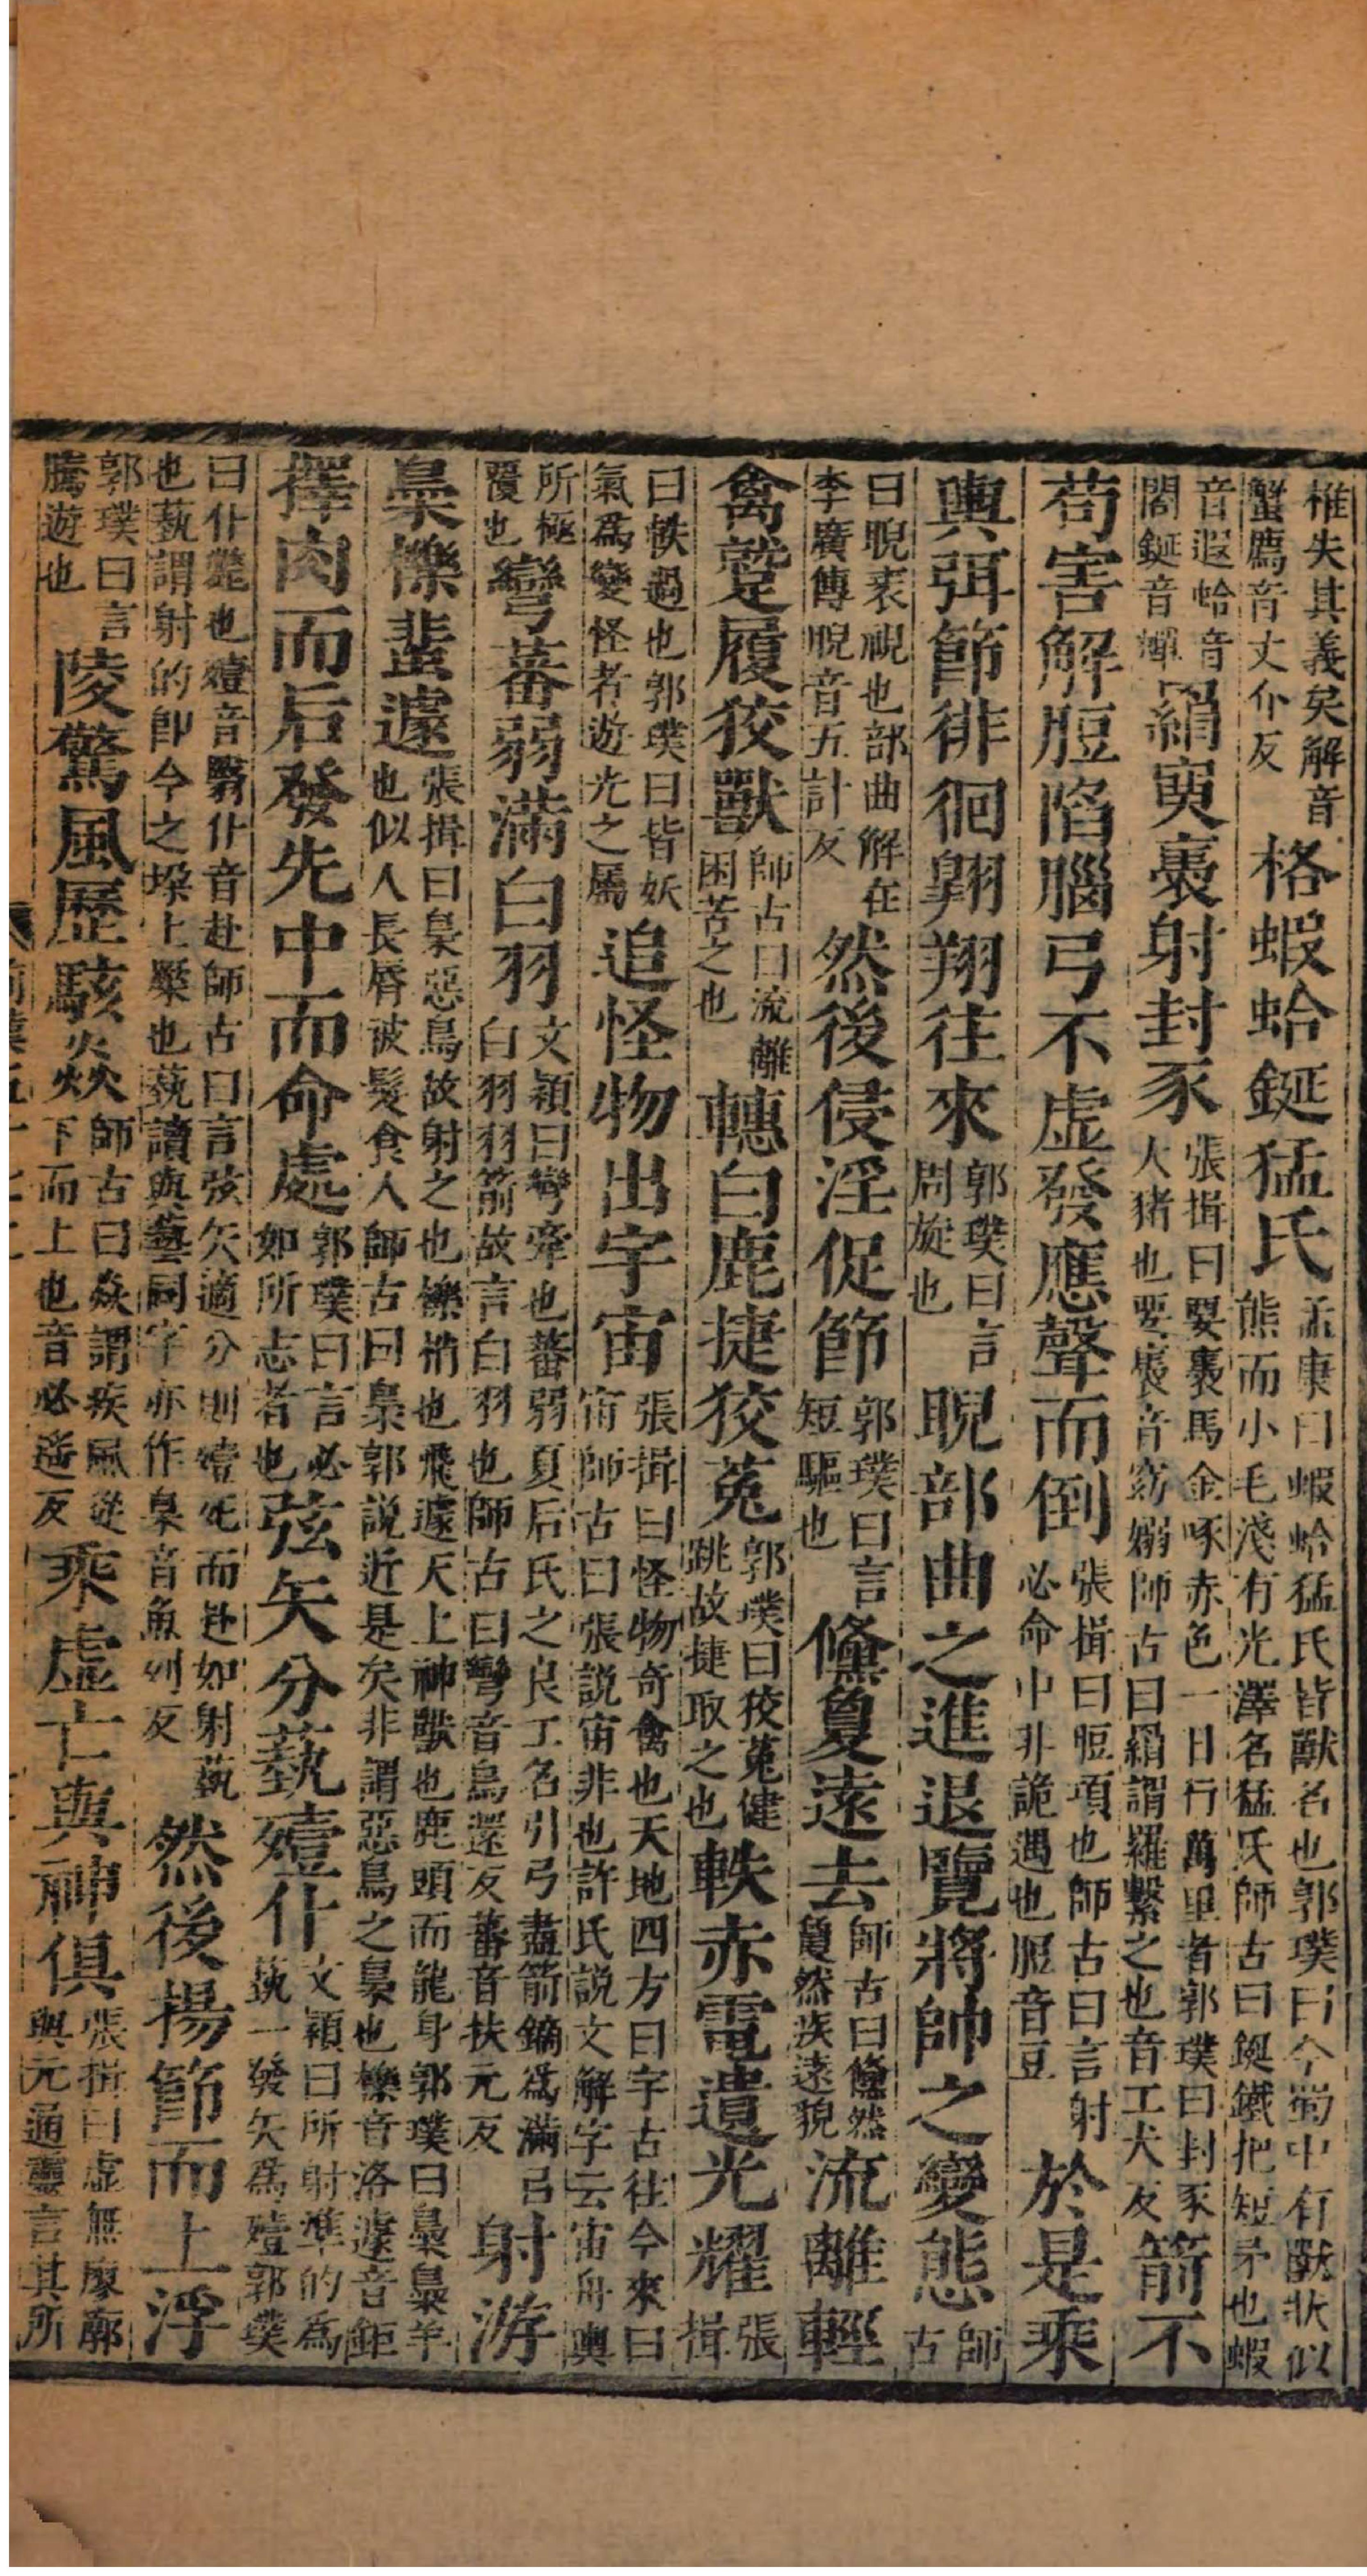 椎失其義矣解音蟹廌音丈介反格蝦蛤鋋猛氏孟康曰蝦蛤猛氏皆獸名也郭璞曰今蜀中有獸狀似熊而小毛淺有光澤名猛氏師古曰鋋鐵把短矛也蝦
音遐蛤音閤鋋音蟬羂要褭射封豕張揖曰要褭馬金喙赤色一日行萬里者郭璞曰封豕大猪也要褭音窈嫋師古曰羂謂羅繫之也音工犬反箭不
苟害解脰陷腦弓不虛發應聲而倒張揖曰脰項也師古曰言射必命中非詭遇也脰音豆於是乘
輿弭節徘徊翺翔往來郭璞曰言周旋也睨部曲之進退覽將帥之變態師古
曰睨衺視也部曲解在李廣傳睨音五計反然後侵淫促節郭璞曰言短驅也儵敻遠去師古曰儵然敻然疾遠貌流離輕
禽蹵履狡獸師古曰流離困苦之也轊白鹿捷狡菟郭璞曰狡菟健跳故捷取之也軼赤電遺光耀張揖
曰軼過也郭璞曰皆妖氣為變怪者遊光之屬追怪物出宇宙張揖曰怪物奇禽也天地四方曰宇古往今來曰宙師古曰張說宙非也許氏說文解字云宙舟輿
所極覆也彎蕃弱滿白羽文穎曰彎牽也蕃弱夏后氏之良工名引弓盡箭鏑為滿弓白羽羽箭故言白羽也師古曰彎音烏還反蕃音扶元反射游
梟櫟蜚遽張揖曰梟惡鳥故射之也櫟梢也飛遽天上神獸也鹿頭而龍身郭璞曰梟梟羊也似人長脣被髮食人師古曰梟郭說近是矣非謂惡鳥之梟也櫟音洛遽音鉅
擇肉而后發先中而命處郭璞曰言必如所志者也弦矢分蓺殪仆文穎曰所射準的為蓺一發矢為殪郭璞
曰仆斃也殪音翳仆音赴師古曰言弦矢適分則殪死而赴如射蓺也蓺謂射的即今之垛上橜也蓺讀與藝同字亦作臬音魚列反然後揚節而上浮
郭璞曰言騰遊也陵驚風歷駭猋師古曰猋謂疾風從下而上也音必遙反乘虛亡與神俱張揖曰虛無廖廓與元通靈言其所